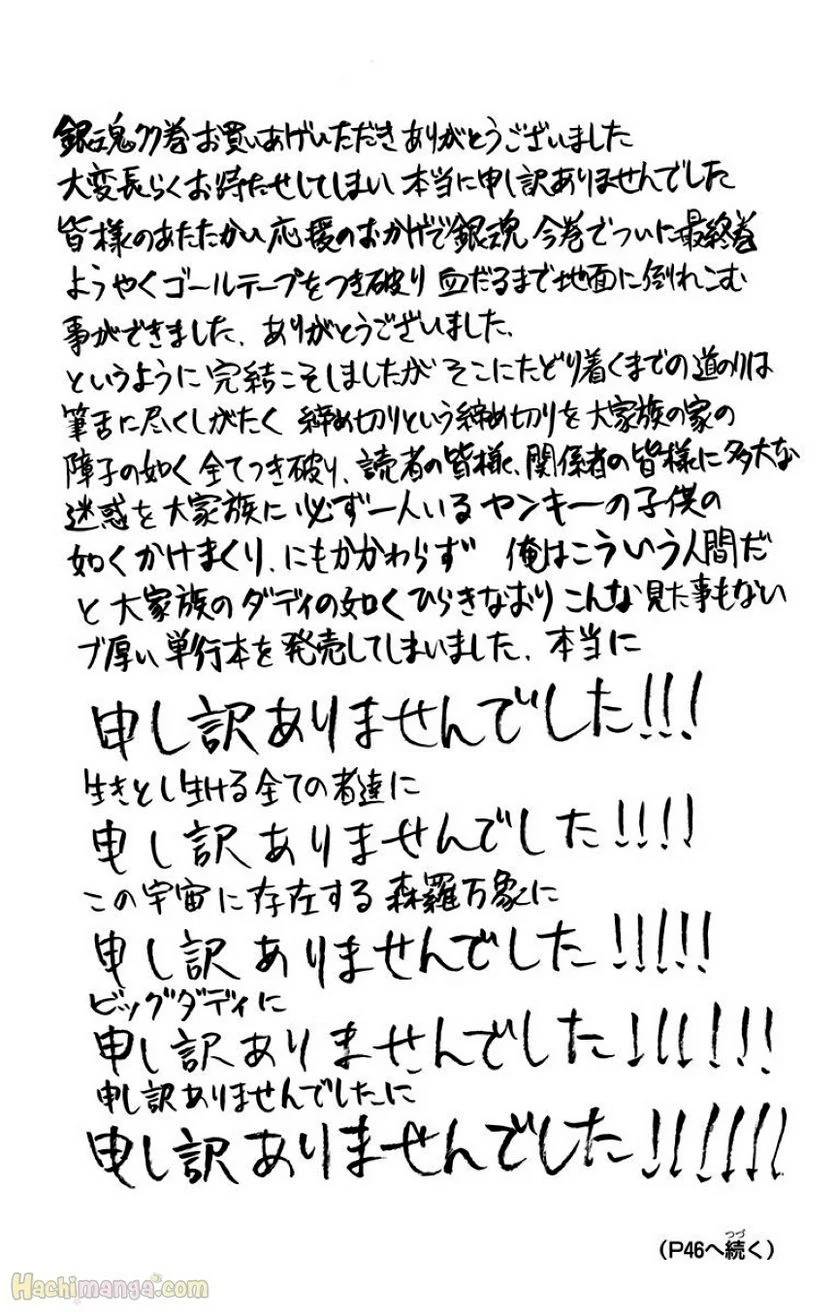 銀魂77巻お買いあげいただきありがとうございました
大変長らくお待たせしてしまい本当に申し訳ありませんでした
皆様のあたたかい応援のおかげで銀魂今巻でついに最終巻
ようやくゴールテープをつき破り血だるまで地面に倒れこむ
事ができました、ありがとうございました、
というように完結こそしましたがそこにたどり着くまでの道のりは
筆舌に尽くしがたく 締め切りという締め切りを大家族の家の
障子の如く全てつき破り、読者の皆様、関係者の皆様に多大な
迷惑を大家族に必ず一人いるヤンキーの子供の
如くかけまくり、にもかかわらず 俺はこういう人間だ
と大家族のダディの如くひらきなおりこんな見た事もない
ブ厚い単行本を発売してしまいました、本当に
申し訳ありませんでした!!!
生きとし生ける全ての者達に
申し訳ありませんでした!!!!
この宇宙に存在する森羅万象に
申し訳ありませんでした!!!!!
ビッグダディに
申し訳ありませんでした!!!!!!
申し訳ありませんでしたに
申し訳ありませんでした!!!!!!!
(P46へ続く)
つづ
Hachimanga.com